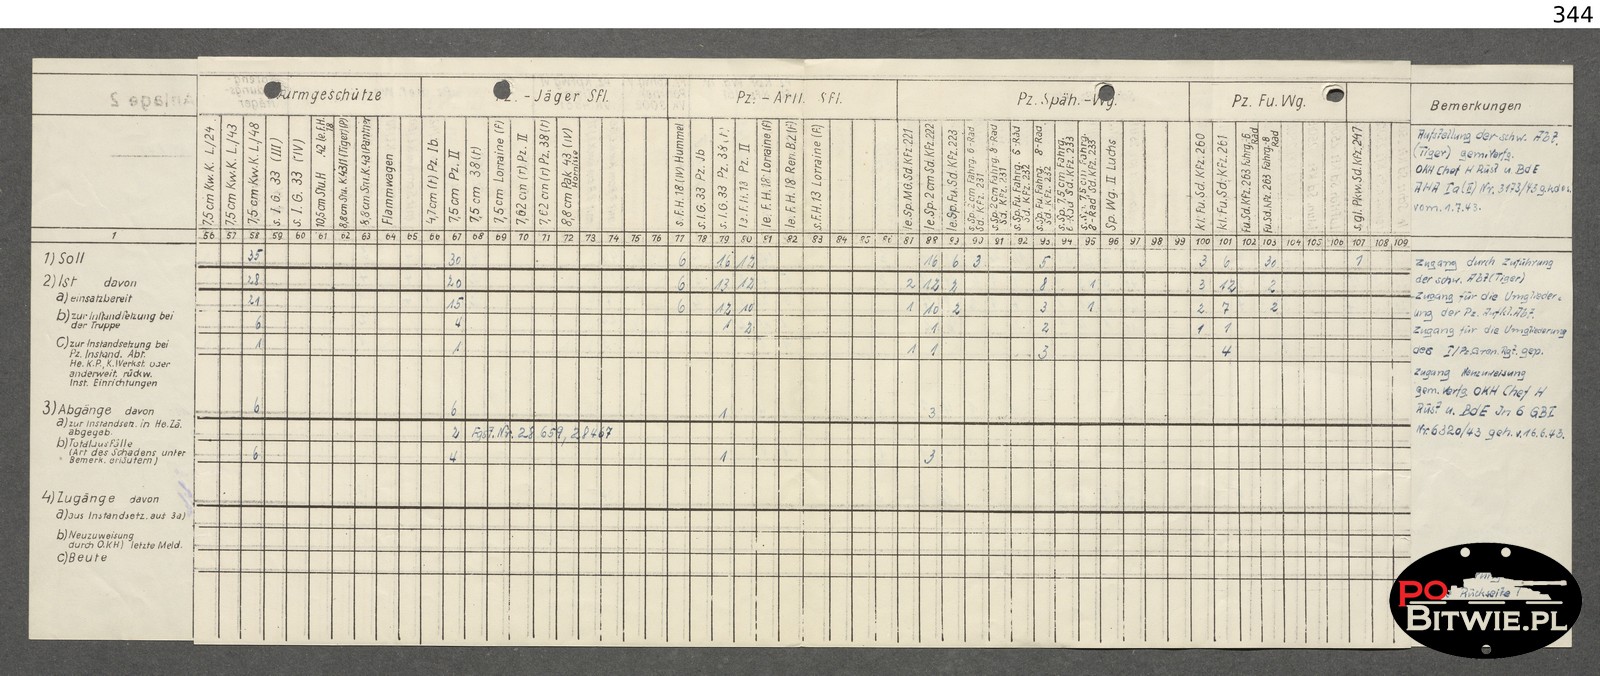 344
Anlage 2
Sturmgeschütze
Pz. - Jäger Sfl.
Pz. - Artl. Sfl.
Pz. Späh. - Wg.
Pz. Fu. Wg.
Bemerkungen
7,5 cm Kw. K. L/24
7,5 cm Kw. K. L/43
7,5 cm Kw. K. L/48
s. I. G. 33 (III)
s. I. G. 33 (IV)
10,5 cm Stu. H. 42 le. F. H. 18
8,8 cm Stu. K. 43/1 (Tiger) (P)
8,8 cm Stu. K. 43 (Panther
Flammwagen
4,7 cm (t) Pz. Ib.
7,5 cm Pz. II
7,5 cm 38 (t)
7,5 cm Lorraine (F)
7,62 cm (r) Pz. II
7,62 cm (r) Pz. 38 (t)
8,8 cm Pak 43 (IV) Hornisse
s. F. H. 18 (IV) Hummel
s. I. G. 33 Pz. Ib
s. I. G. 33 Pz. 38 (t)
le. F. H. 18 Pz. II
le. F. H. 18 Lorraine (F)
le. F. H. 18 Ren. B. 2 (F)
s. F. H. 13 Lorraine (F)
le. Sp. M. G. Sd. Kfz. 221
le. Sp. 2 cm Sd. Kfz. 222
le. Sp. Fu. Sd. Kfz. 223
s. Sp. 2 cm Fahrg. 6-Rad Sd. Kfz. 231
s. Sp. 2 cm Fahrg. 8-Rad Sd. Kfz. 231
s. Sp. Fu. Fahrg. 6-Rad Sd. Kfz. 232
s. Sp. Fu. Fahrg. 8-Rad Sd. Kfz. 232
s. Sp. 7,5 cm Fahrg. 6-Rad Sd. Kfz. 233
s. Sp. 7,5 cm Fahrg. 8-Rad Sd. Kfz. 233
Sp. Wg. II Luchs
kl. Fu. Sd. Kfz. 260
kl. Fu. Sd. Kfz. 261
Fu. Sd. Kfz. 263 Fahrg. 6 Rad
Fu. Sd. Kfz. 263 Fahrg. 8 Rad
s. gl. Pkw. Sd. Kfz. 247
Aufstellung der schw. Abt.
(Tiger) gem. Verfg.
OKH Chef H Rüst u. BdE
AHA Ia (E) Nr. 3173/43 g.
vom. 1.7.43.
1 56 57 58 59 60 61 62 63 64 65 66 67 68 69 70 71 72 73 74 75 76 77 78 79 80 81 82 83 84 85 86 87 88 89 90 91 92 93 94 95 96 97 98 99 100 101 102 103 104 105 106 107 108 109
1) Soll 35 30 6 16 12 16 6 3 5 3 6 30 1
2) Ist davon 28 20 6 13 12 2 12 2 8 1 3 12 2
a) einsatzbereit 21 15 6 12 10 1 10 2 3 1 2 7 2
b) zur Instandsetzung bei
der Truppe 6 4 1 2 1 2 1 1
c) zur Instandsetzung bei 1 1 1 1 3 4
Pz. Instand. Abt.
He. K. P., K. Werkst. oder
anderweit. rückw.
Inst. Einrichtungen
3) Abgänge davon 6 6 1 3
a) zur Instandsetz. in He. Zä.
abgegeb. 2 Fgst. Nr. 28 659, 28467
b) Totalausfälle
(Art des Schadens unter 6 4 1 3
Bemerk. erläutern)
4) Zugänge davon
a) aus Instandsetz. aus 3a)
b) Neuzuweisung
durch O.K.H.) letzte Meld.
c) Beute
Zugang durch Zuführung
der schw. Abt (Tiger)
Zugang für die Umglieder-
ung der Pz. Aufkl. Abt.
Zugang für die Umgliederung
des I/Pz. Gren. Rgt. gep.
Zugang Neuzuweisung
gem. Verfg OKH Chef H
Rüst u. BdE Jn 6 GBI
Nr. 6320/43 geh. v. 16.6.43.
Rückseite !
PO
BITWIE.PL